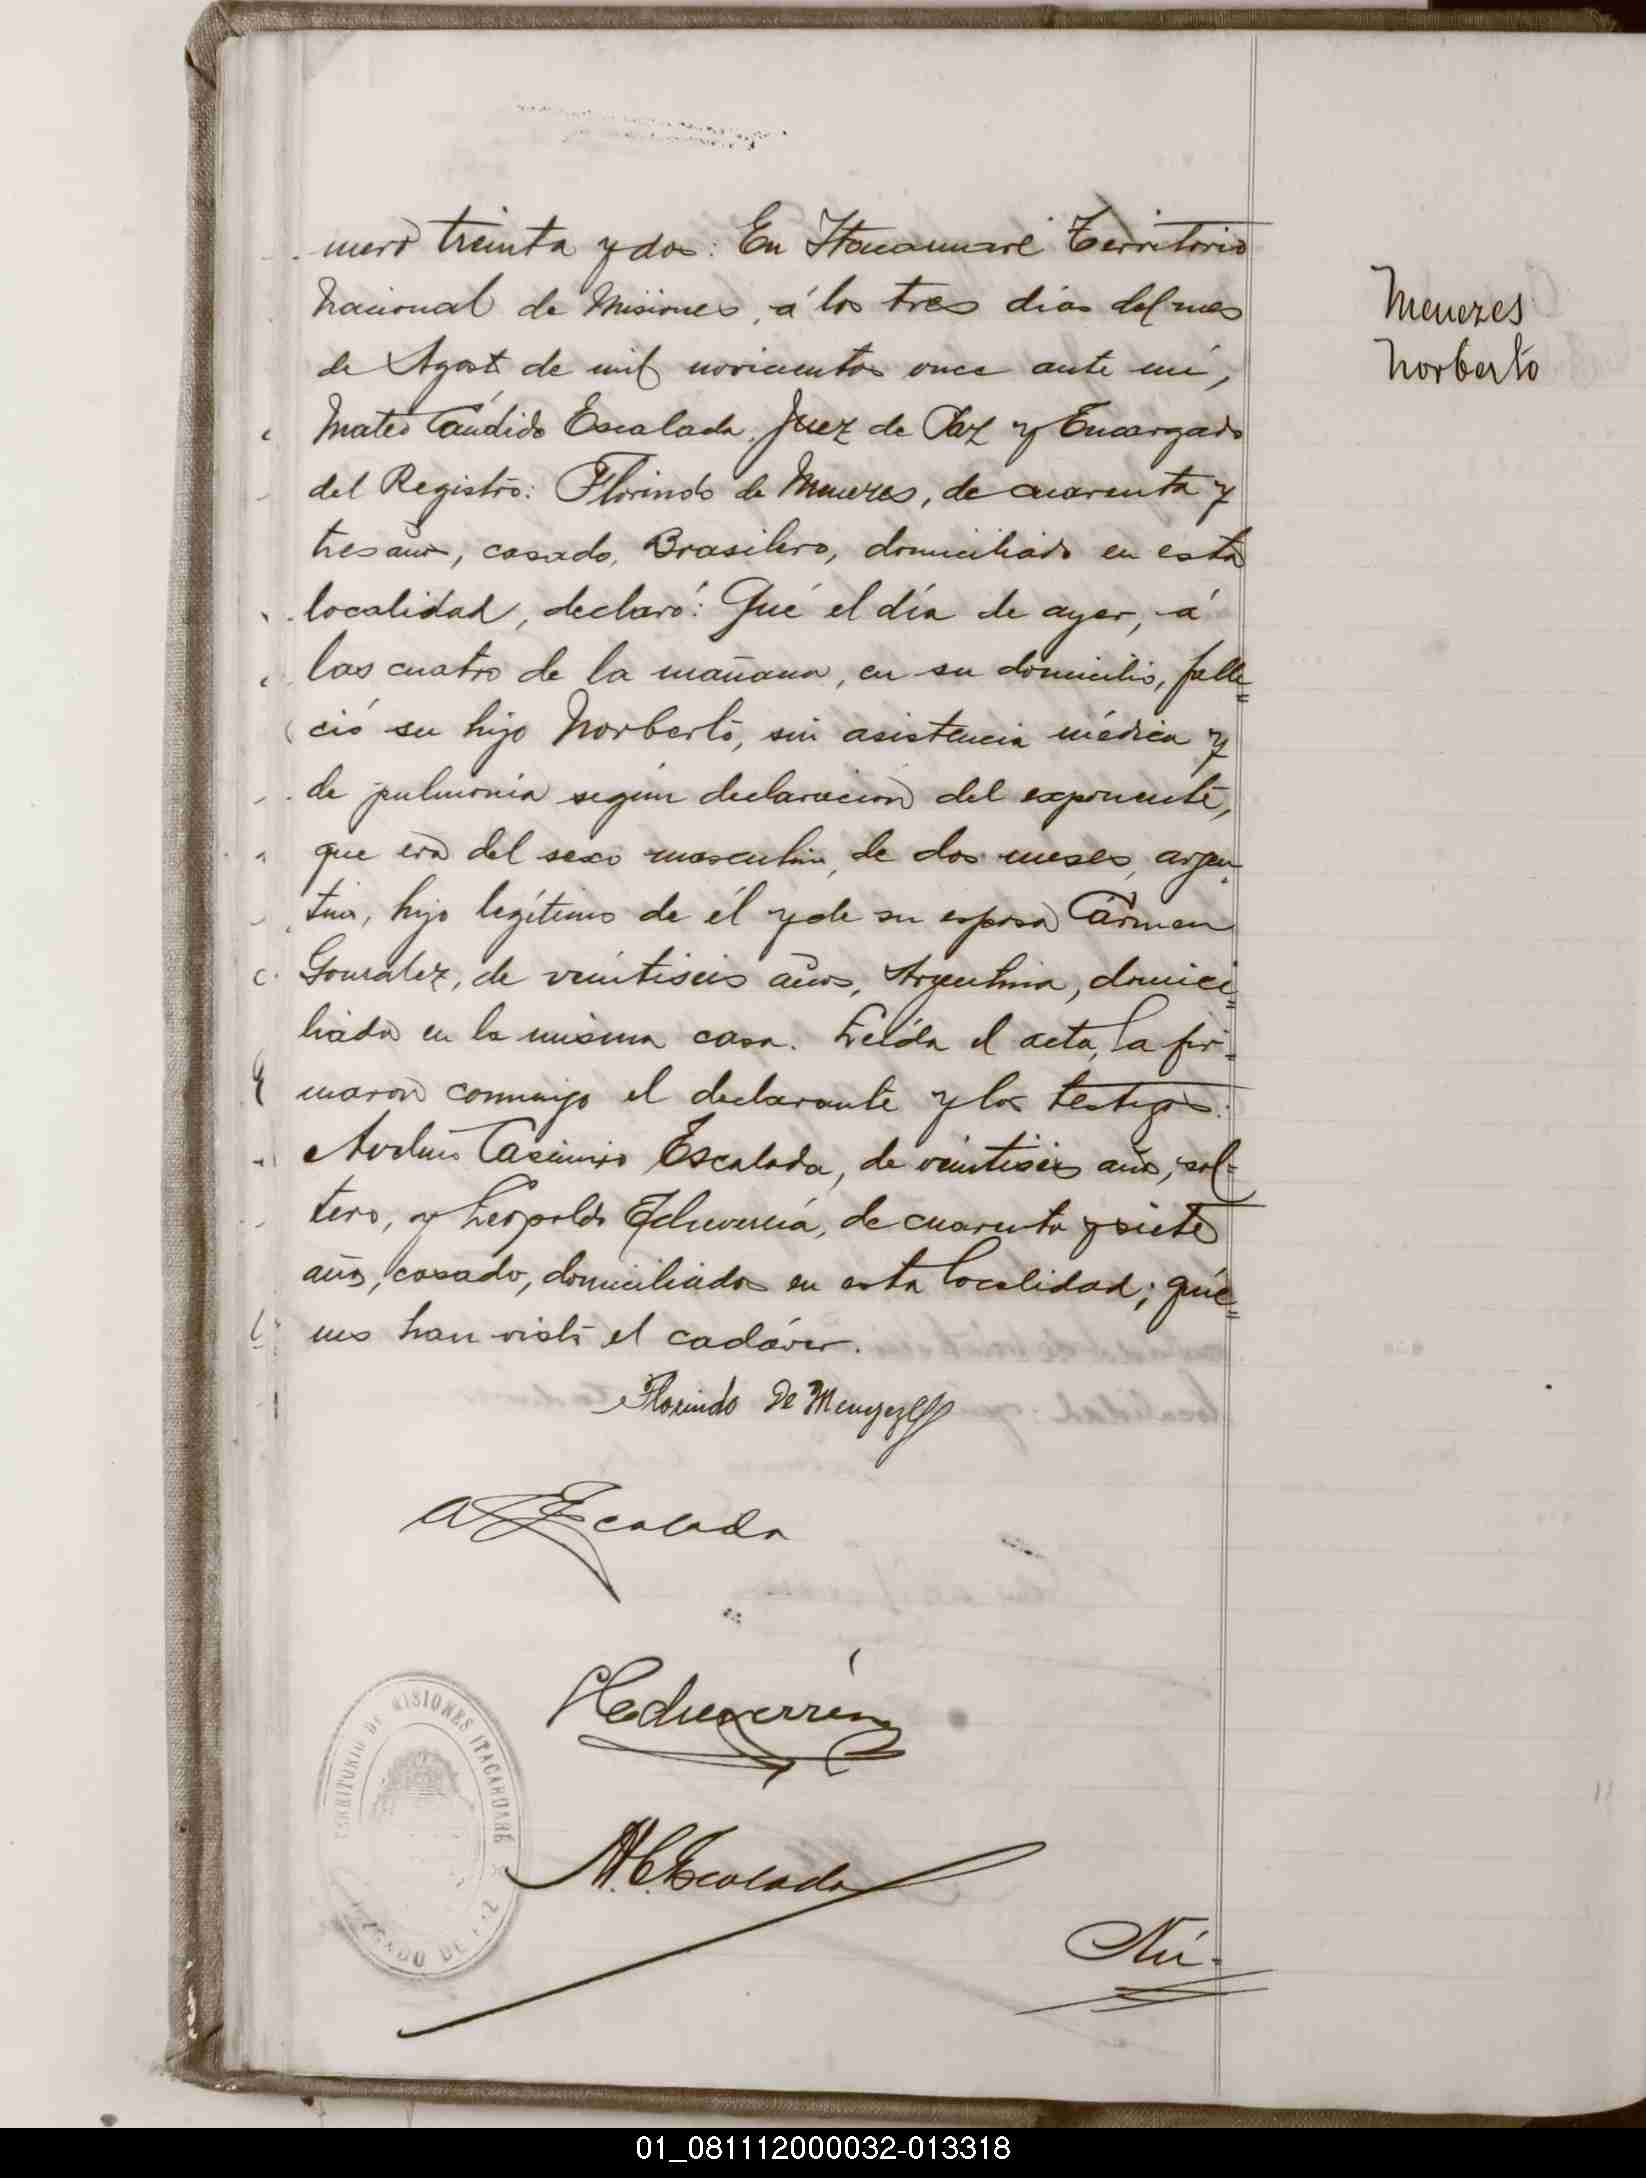 mero treinta y dos: En Itacaruaré Territorio
Nacional de Misiones, á los tres dias del mes
de Agosto de mil novecientos once ante mi,
Mateo Cándido Escalada, Juez de Paz y Encargado
del Registro: Florindo de Menezes, de cuarenta y
tres años, casado, Brasilero, domiciliado en esta
localidad, declaró: Qué el día de ayer, á
las cuatro de la mañana, en su domicilio, falle=
ció su hijo Norberto, sin asistencia médica y
de pulmonia según declaracion del exponente,
que era del sexo masculino, de dos meses, argen=
tino, hijo legítimo de él y de su esposa Cármen
Gonzalez, de veintiseis años, Argentina, domici=
liada en la misma casa. Leída el acta, la fir=
maron conmigo el declarante y los testigos:
Avelino Casimiro Escalada, de veintiseis años, sol=
tero, y Leopoldo Echeverría, de cuarenta y siete
años, casado, domiciliados en esta localidad; quié=
nes han visto el cadáver.
Menezes
Norberto
Florindo De Menezes
A Escalada
LEcheverría
M. C. Escalada
Nú=
TERRITORIO DE MISIONES ITACARUARÉ
JUZGADO DE PAZ
01_081112000032-013318